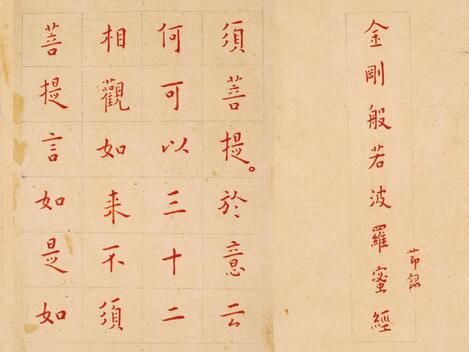 金剛般若波羅蜜經
節錄
須菩提。於意云
何可以三十二
相觀如来不須
菩提言如是如